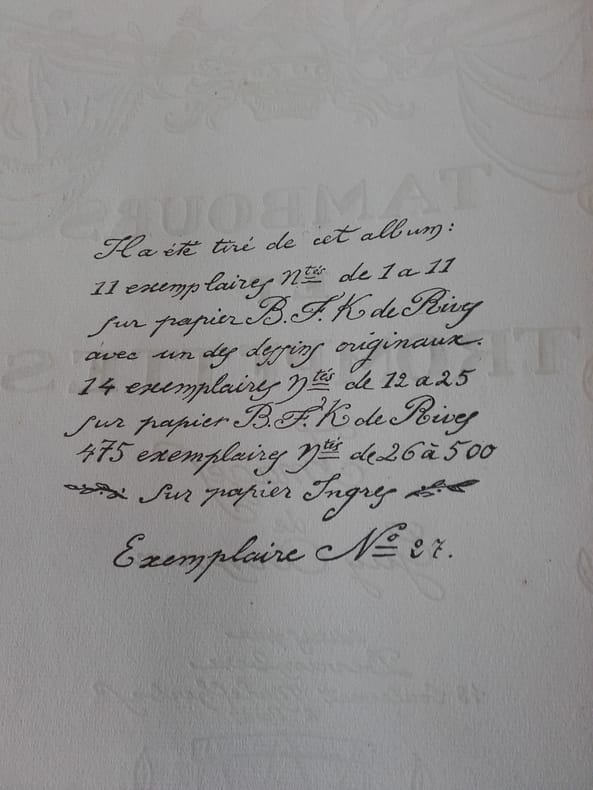 Il a été tiré de cet album:
11 exemplaires Ntés de 1 a 11
sur papier B. F. K de Rives
avec un des dessins originaux.
14 exemplaires Ntés de 12 a 25
sur papier B. F. K de Rives
475 exemplaires Ntés de 26 à 500
sur papier Ingres
Exemplaire No 27.
TAMBOURS
TROMPETTES